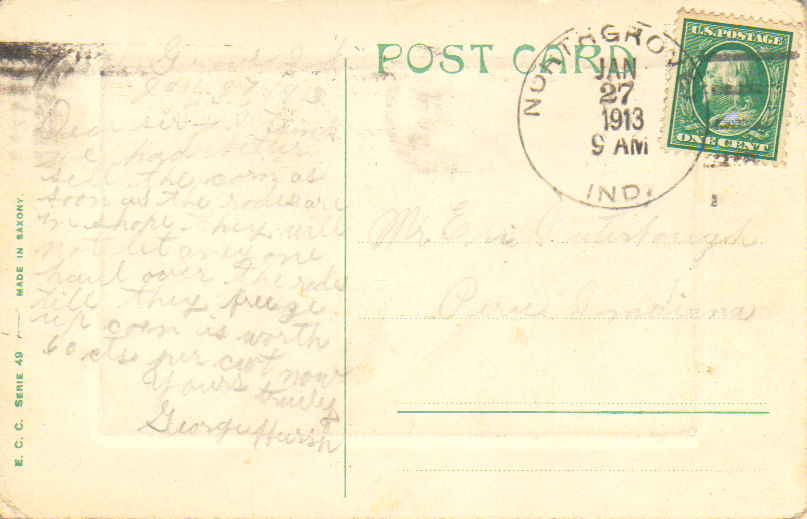 POST CARD
NORTH GROVE
JAN
27
1913
9 AM
IND.
U.S. POSTAGE
ONE CENT
Dear sir – I think
we had better
sell the corn as
soon as the rodes are
in shope. They will
not let any one
haul over the rode
till they freeze
up corn is worth
60 cts per cwt now
Yours truley
George Hursh
Mr. Eri
Peru Indiana
E. C. C. SERIE 49 MADE IN SAXONY.